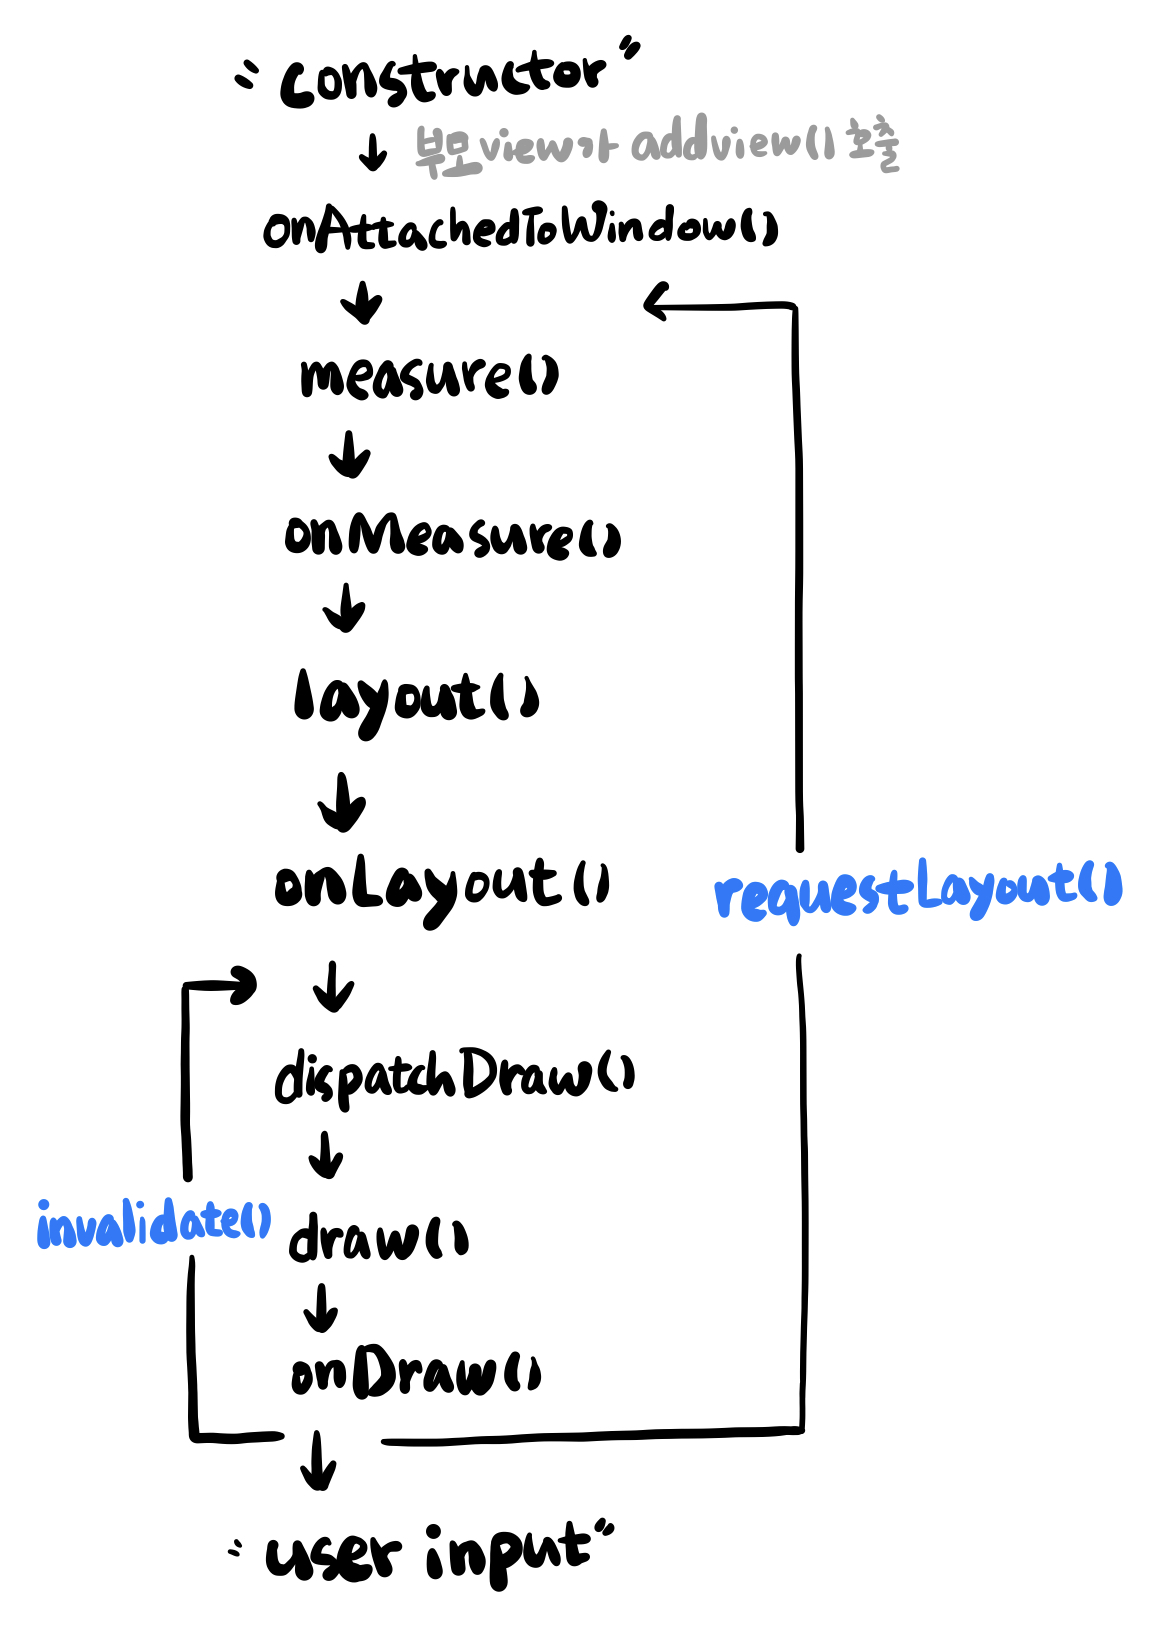 "constructor"
부모view가 addview() 호출
onAttachedToWindow()
measure()
onMeasure()
layout()
onLayout()
requestLayout()
dispatchDraw()
invalidate()
draw()
onDraw()
"user input"